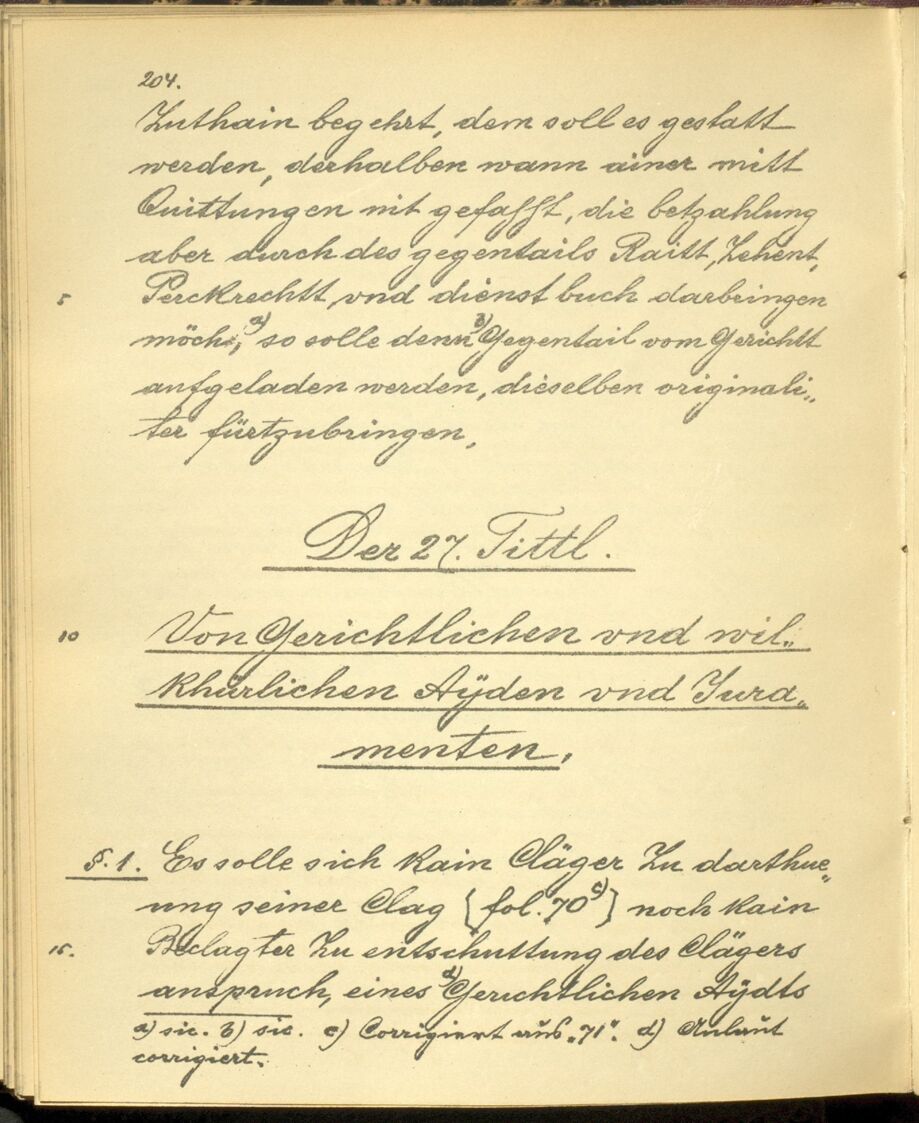 204.
Zuthain begehrt, dem soll es gestatt
werden, derhalben wann ainer mitt
Quittungen nit gefasst, die betzahlung
aber durch des gegentails Raitt, Zehent,
5 Perckrechtt, vnd dienst buch darbringen
möch, a) so solle denn b) Gegentail vom Gerichtt
aufgeladen werden, dieselben originali„
ter fürtzubringen.
Der 27. Tittl.
10 Von Gerichtlichen vnd wil„
khürlichen Aÿden vnd Jura„
menten.
§. 1. Es solle sich kain Cläger Zu darthue„
ung seiner Clag [fol. 70 c)] noch kain
15. Beclagter Zu entschuttung des Clägers
anspruch, eines d) Gerichtlichen Aÿdts
a) sic. b) sic. c) Corrigiert aus „71“. d) Anlaut
corrigiert.